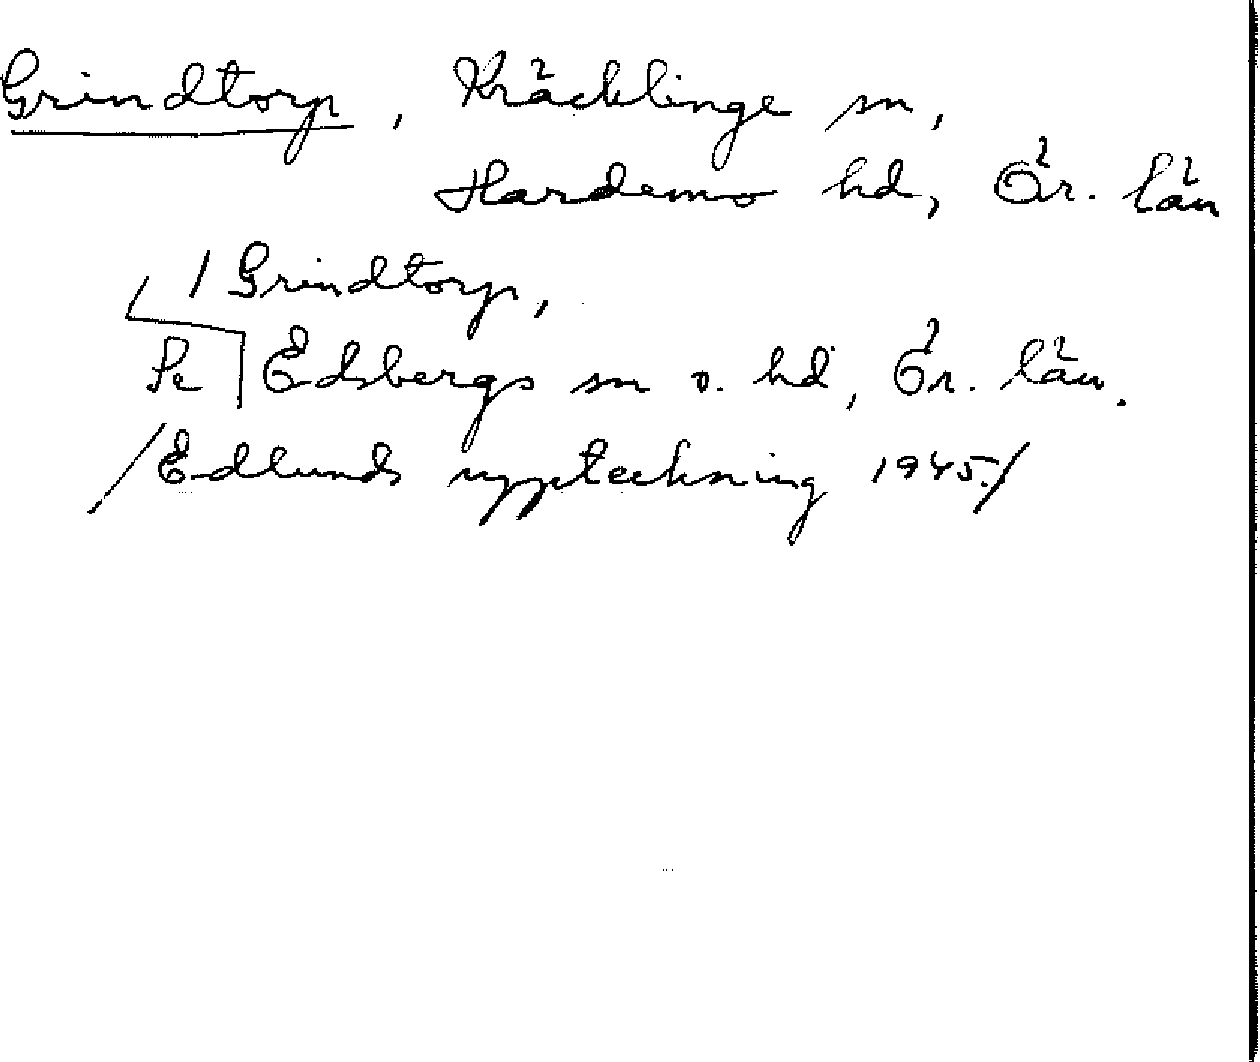 Grindtorp, Kräcklinge sn,
Hardemo hd, Ör. län
/ Grindtorp,
Se Edsbergs sn o. hd, Ör. län.
/Edlunds uppteckning 1945./